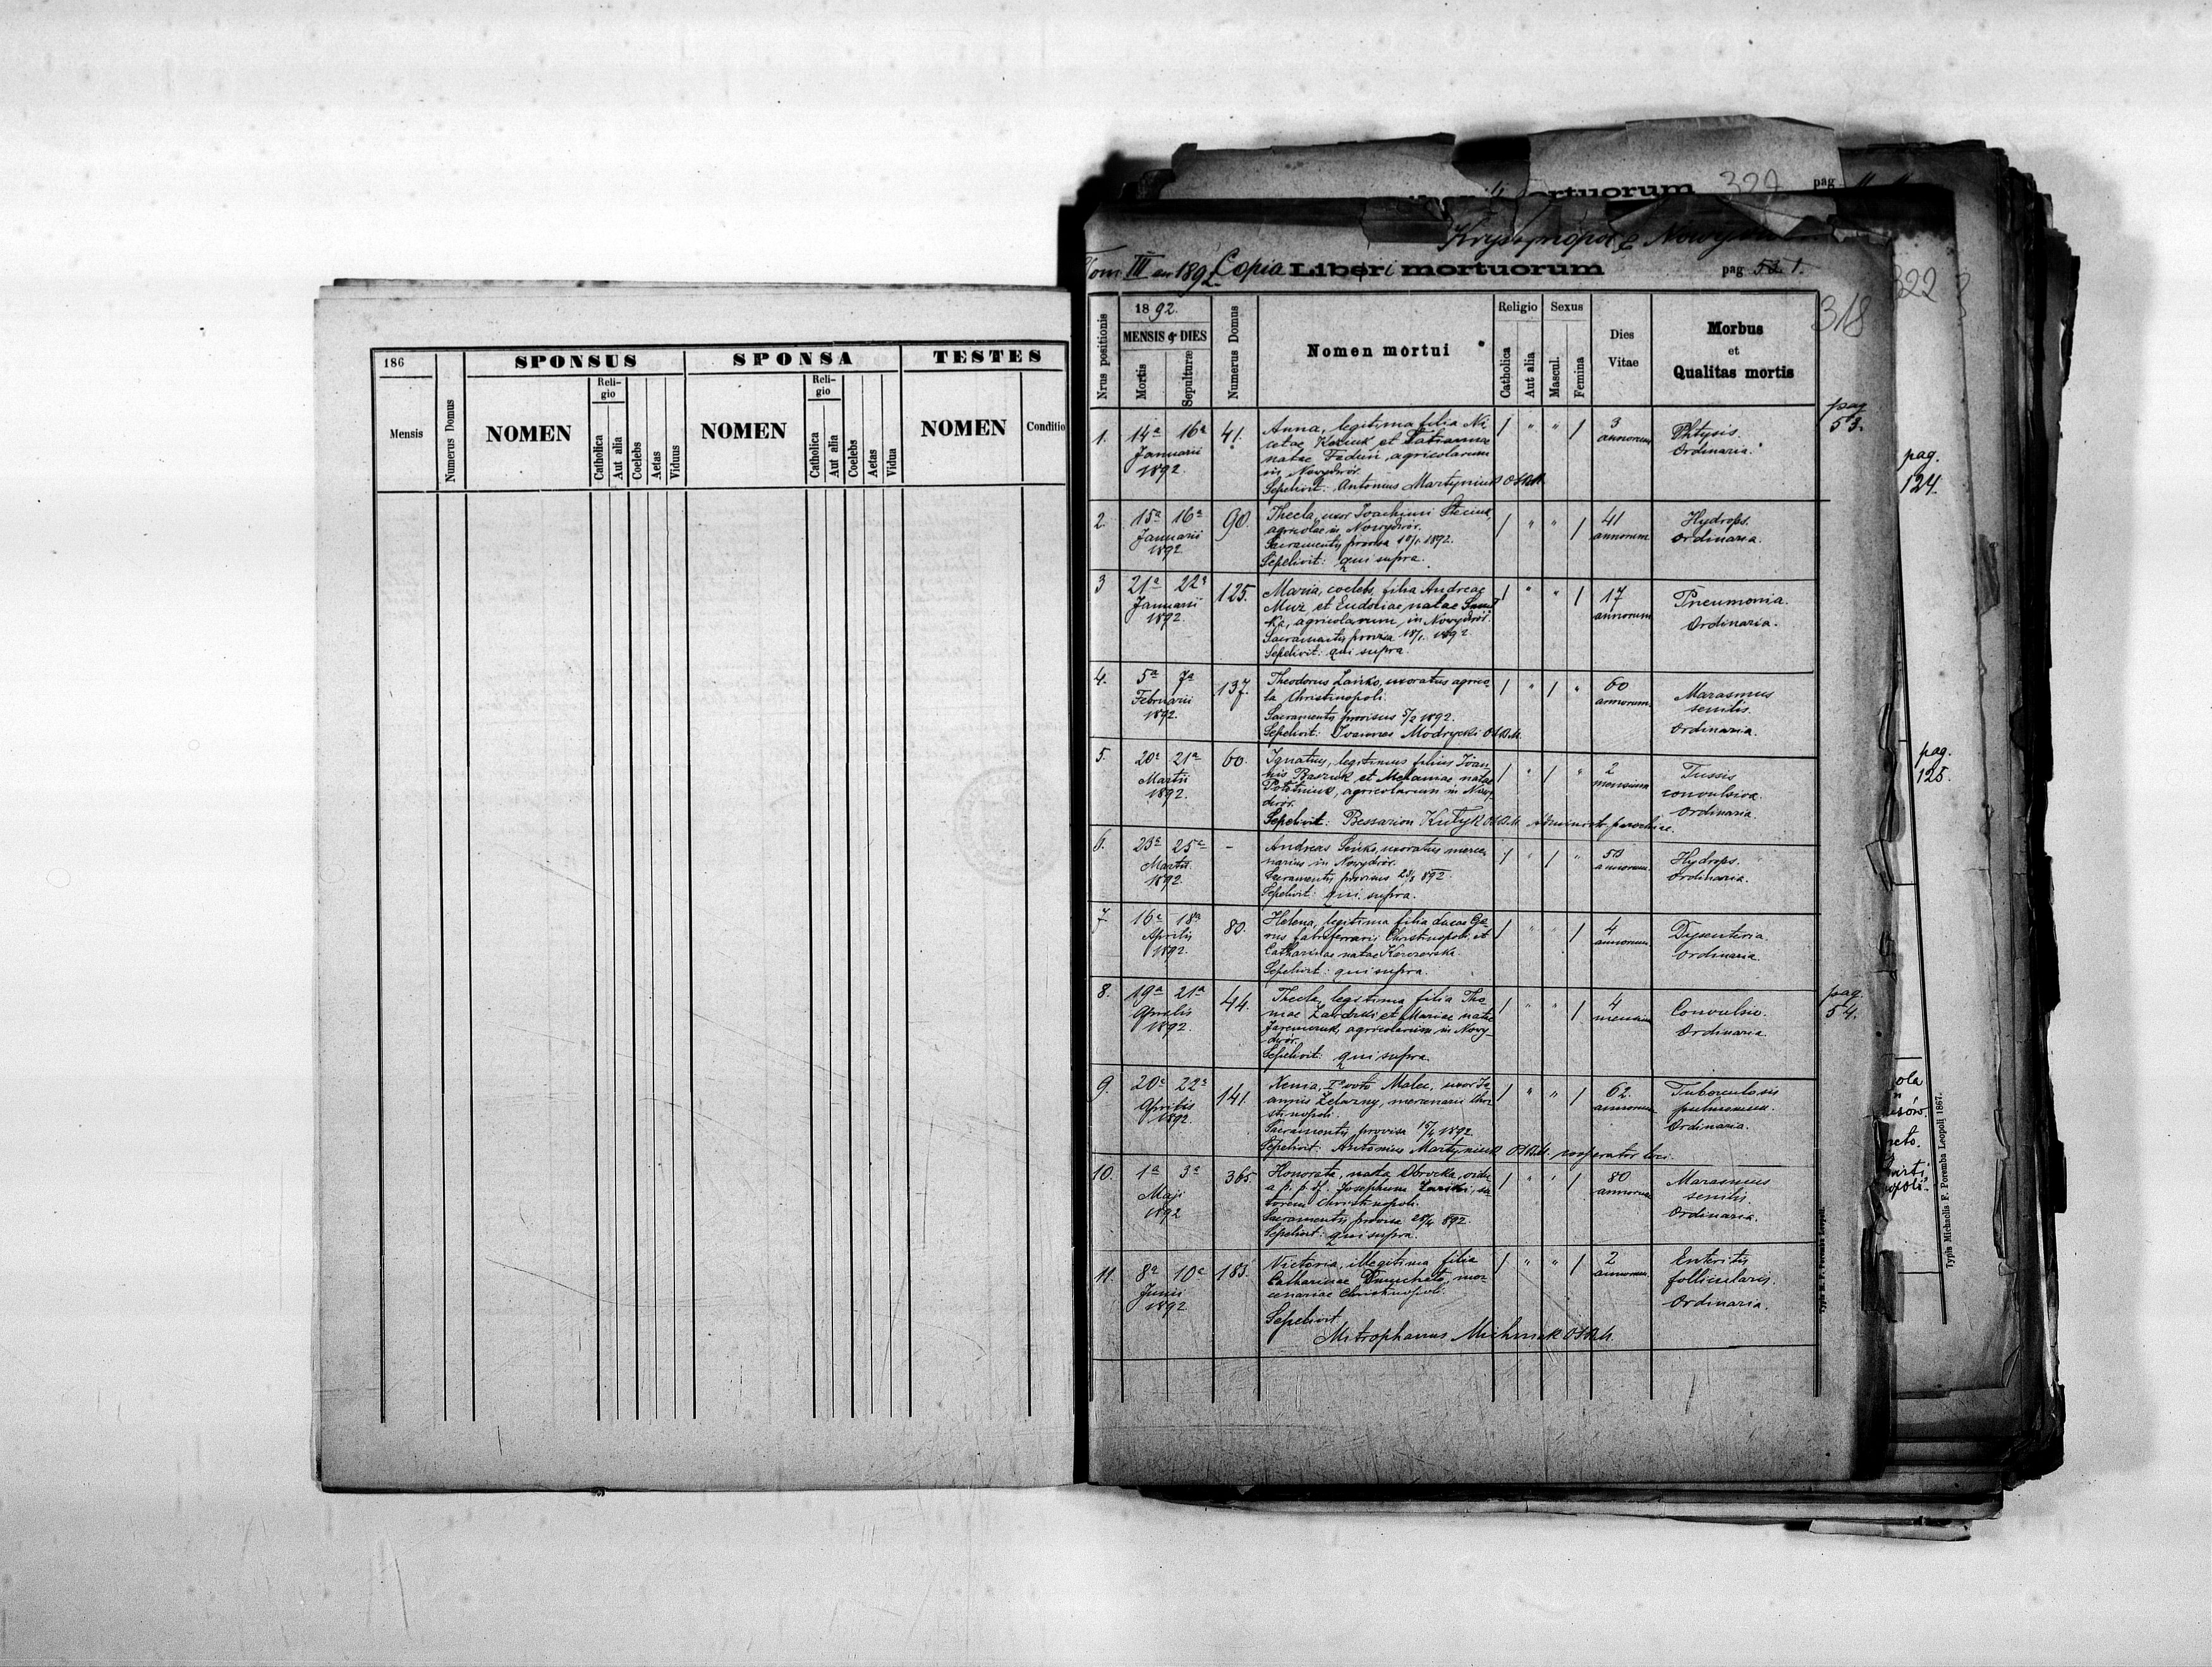 186
SPONSUS
SPONSA
TESTES
Mensis
Numerus Domus
NOMEN
Religio
Catholica
Aut alia
Coelebs
Aetas
Viduus
NOMEN
Religio
Catholica
Aut alia
Coelebs
Aetas
Vidua
NOMEN
Conditio
ortuorum 327 pag
Tom III an 1892 Copia Libri mortuorum pag 53 1.
318
322
Nrus positionis
1892.
MENSIS & DIES
Mortis
Sepulturæ
Numerus Domus
Nomen mortui
Religio
Catholica
Aut alia
Sexus
Mascul.
Femina
Dies Vitae
Morbus
et
Qualitas mortis
pag
53.
1. 14a 16a Januarii 1892 41.
Anna, legitima filia Ni-
cetae Koziuk et Tatiannae
natae Feduń, agricolarum
in Nowydwór.
Sepelivit: Antonius Martyniuk OSBM.
3 annorum
Phtysis.
Ordinaria.
2. 15a 16a Januarii 1892 90.
Thecla, uxor Joachimi Steciuk,
agricolae in Nowydwór.
Sacramentis provisa 10/1 1892.
Sepelivit: qui supra.
41 annorum
Hydrops.
Ordinaria.
3 21a 22a Januarii 1892 125.
Maria, coelebs, filia Andreae
Muz et Eudociae natae
agricolarum, in Nowydwór.
Sacramentis provisa 18/1 1892
Sepelivit: qui supra.
17 annorum
Pneumonia.
Ordinaria.
4. 5a 7a Februarii 1892. 137.
Theodorus Lańko, uxoratus agrico-
la Christinopoli.
Sacramentis provisus 5/2 1892.
Sepelivit: Ioannes Modrycki OSBM.
60 annorum
Marasmus
senilis.
Ordinaria.
5. 20a 21a Martii 1892. 60.
Ignatius, legitimus filius Ioan-
nis et Melaniae natae
agricolarum in Nowy-
dwór.
Sepelivit: Bessarion Kutyk OSBM. administr. parochiae.
2 mensium
Tussis
convulsiva.
Ordinaria.
6. 23a 25a Martii 1892. -
Andreas Seńko, uxoratus merce-
narius in Nowydwór.
Sacramentis provisus 892.
Sepelivit: qui supra.
50 annorum
Hydrops.
Ordinaria.
7. 16a 18a Aprilis 1892. 80.
Helena, legitima filia Lucae
fabriferrarii Christinopoli et
Catharinae natae
Sepelivit: qui supra.
4 annorum
Dysenteria.
Ordinaria.
pag.
54.
8. 19a 21a Aprilis 1892. 44.
Thecla, legitima filia Tho-
mae et Mariae natae
Jaremczuk, agricolarum in Nowy-
dwór.
Sepelivit: qui supra.
4 mensium
Convulsio.
Ordinaria
9. 20a 22a Aprilis 1892. 141.
Xenia, Io voto Malec, uxor Io-
annis Zelazny, mercenarii Chri-
stinopoli.
Sacramentis provisa 15/4 1892
Sepelivit: Antonius Martyniuk OSBM. cooperator loci.
62. annorum
Tuberculosis
pulmonum.
Ordinaria.
10. 1a 3a Maji 1892 365.
Honorata, nata Obrocka, vidu-
a p. p. df. Josephum
Christinopoli.
Sacramentis provisa 28/4 892.
Sepelivit: qui supra.
80 annorum
Marasmus
senilis.
Ordinaria.
11. 8a 10a Junii 1892 185.
Victoria, illegitima filia
Catharinae mer-
cenariae Christinopoli.
Sepelivit
Mitrophanus Michniak OSBM.
2 annorum
Enteritis
follicularis.
Ordinaria.
pag.
124.
pag.
125.
Typis Michaelis F. Poremba Leopoli 1867.